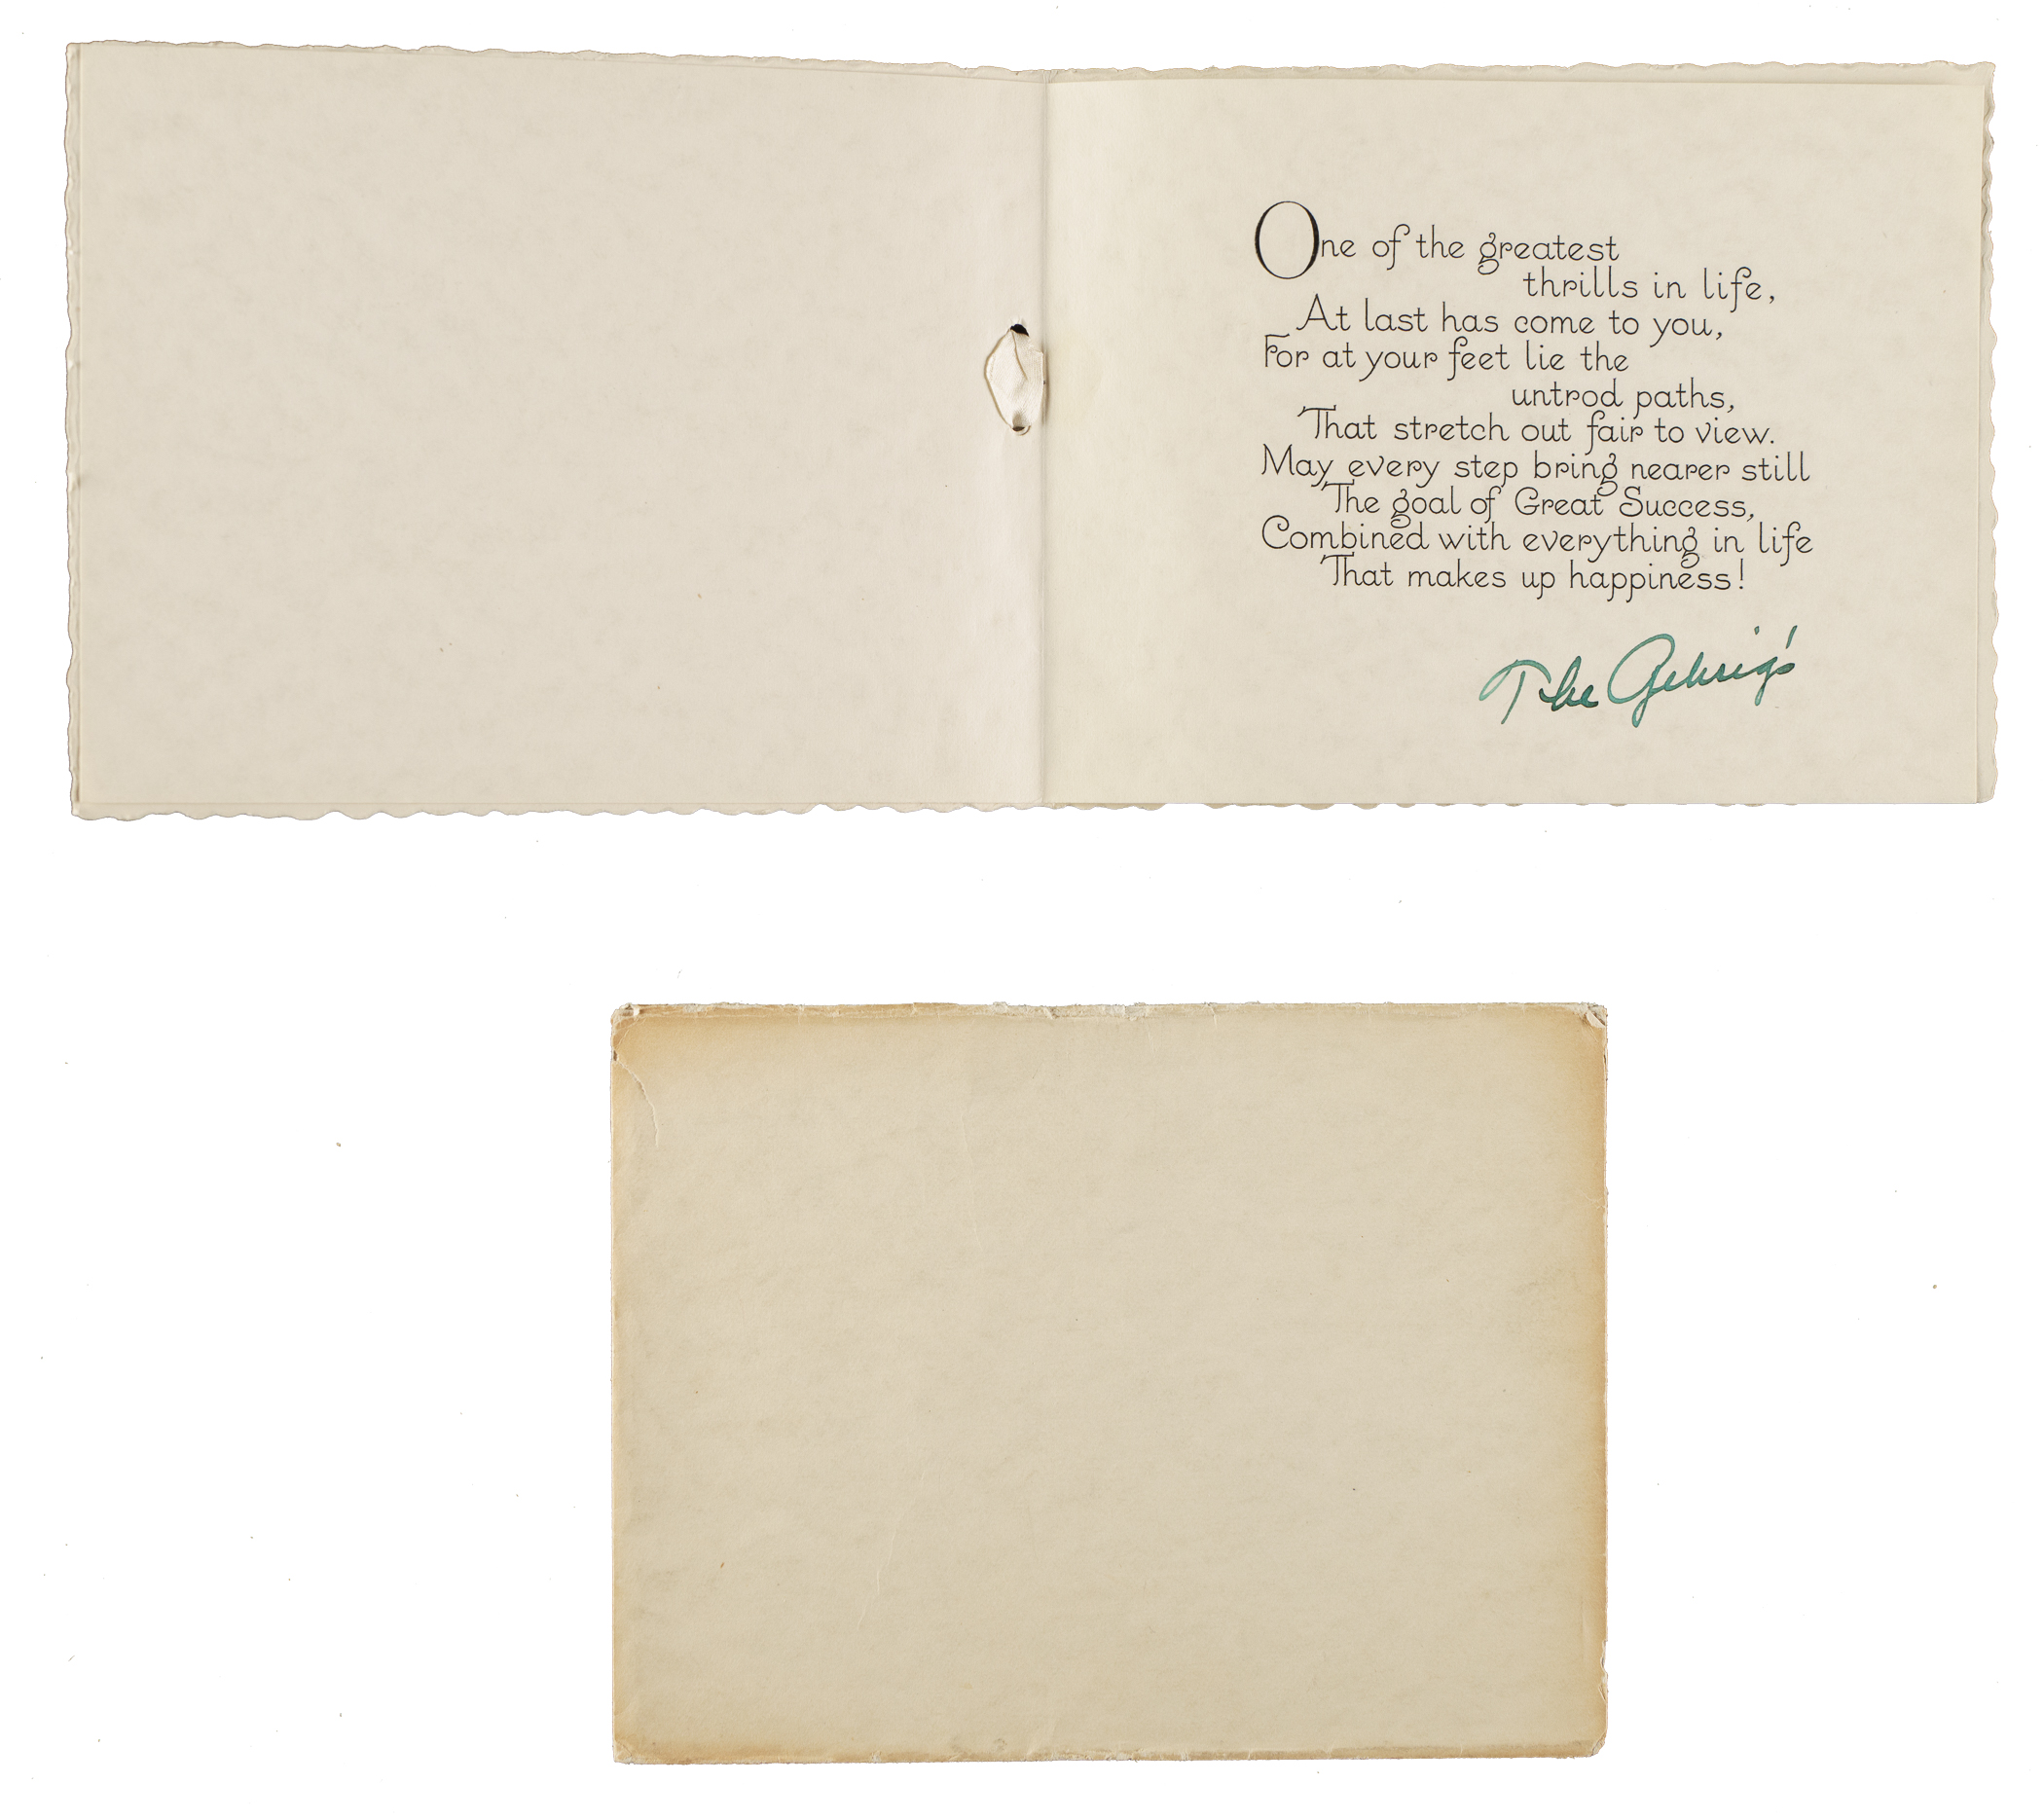 One of the greatest
thrills in life,
At last has come to you,
For at your feet lie the
untrod paths,
That stretch out fair to view.
May every step bring nearer still
The goal of Great Success,
Combined with everything in life
That makes up happiness!
The Gehrig's